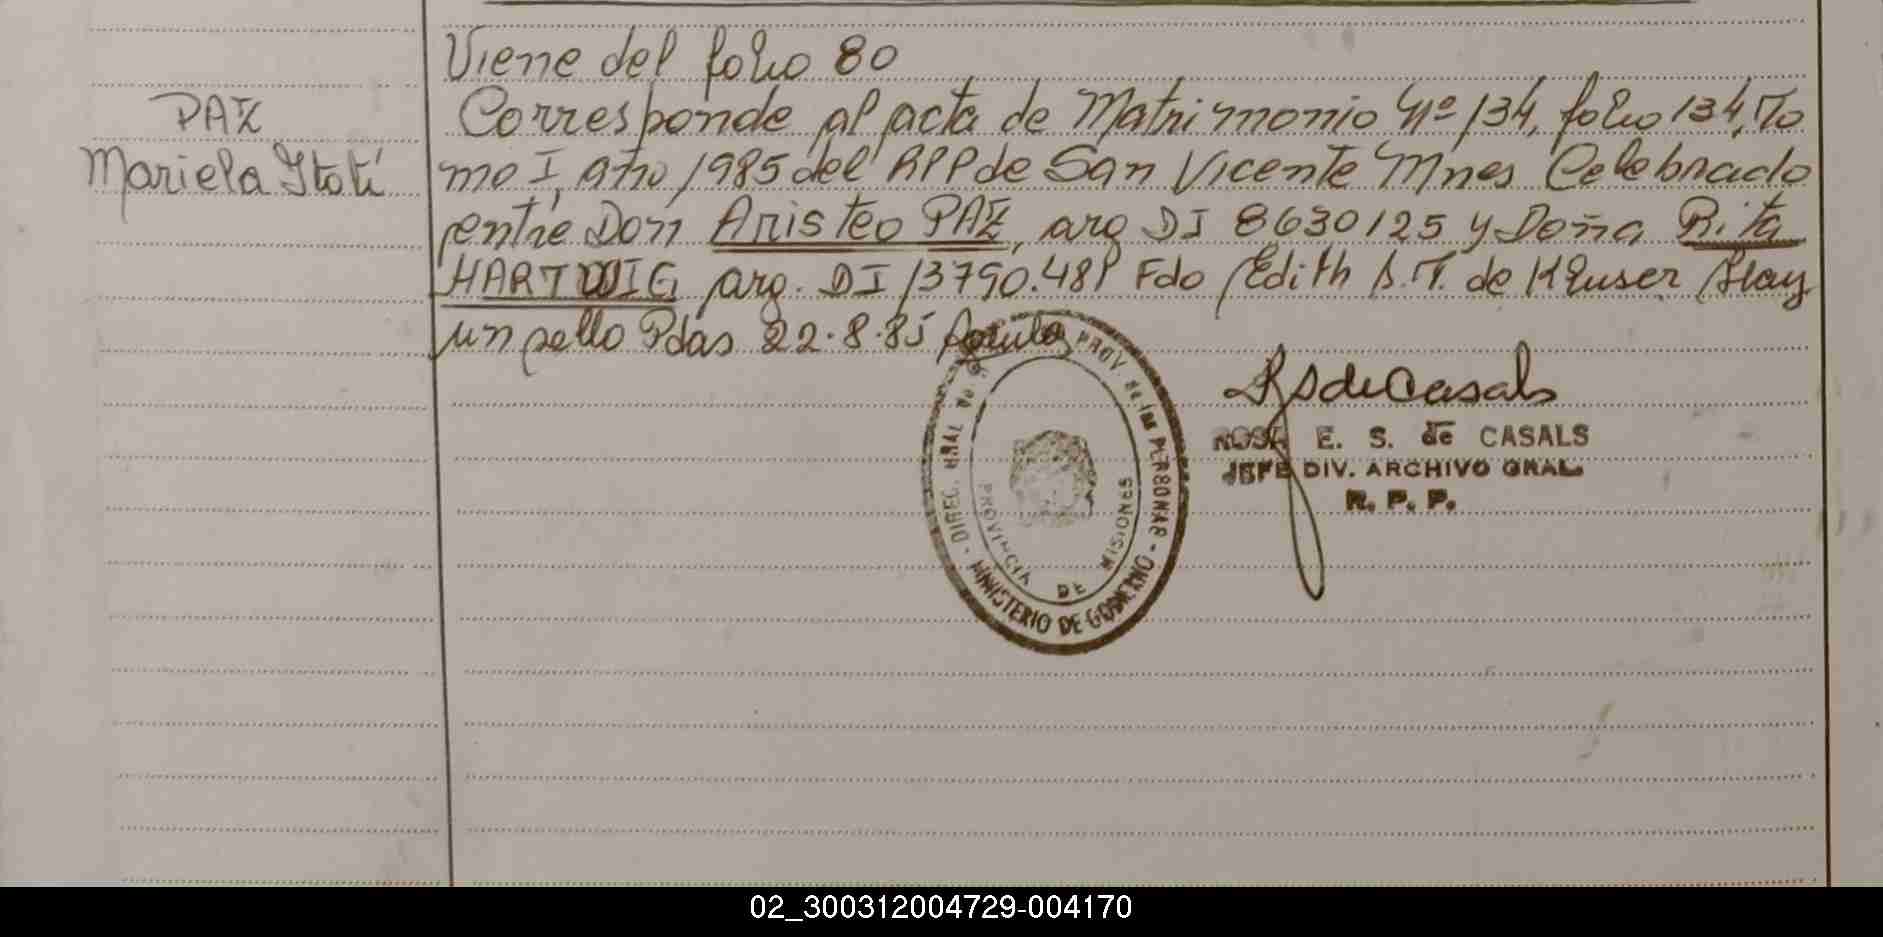 Viene del folio 80
PAZ
Corresponde al acta de Matrimonio Nº 134, folio 134, To
Mariela Itatí
mo I, año 1985 del RPP de San Vicente Mnes Celebrado
entre Don Aristeo PAZ, arg DI 8630125 y Doña Rita
HARTWIG, arg. DI 13790.481 Fdo Edith S.T. de Kluser Hay
un sello Pdas 22.8.85
RSdeCasals
ROSA E. S. de CASALS
JEFE DIV. ARCHIVO GRAL.
R. P. P.
DIREC. GRAL. de PROV de las PERSONAS - MINISTERIO DE GOBIERNO -
PROVINCIA DE MISIONES
02_300312004729-004170